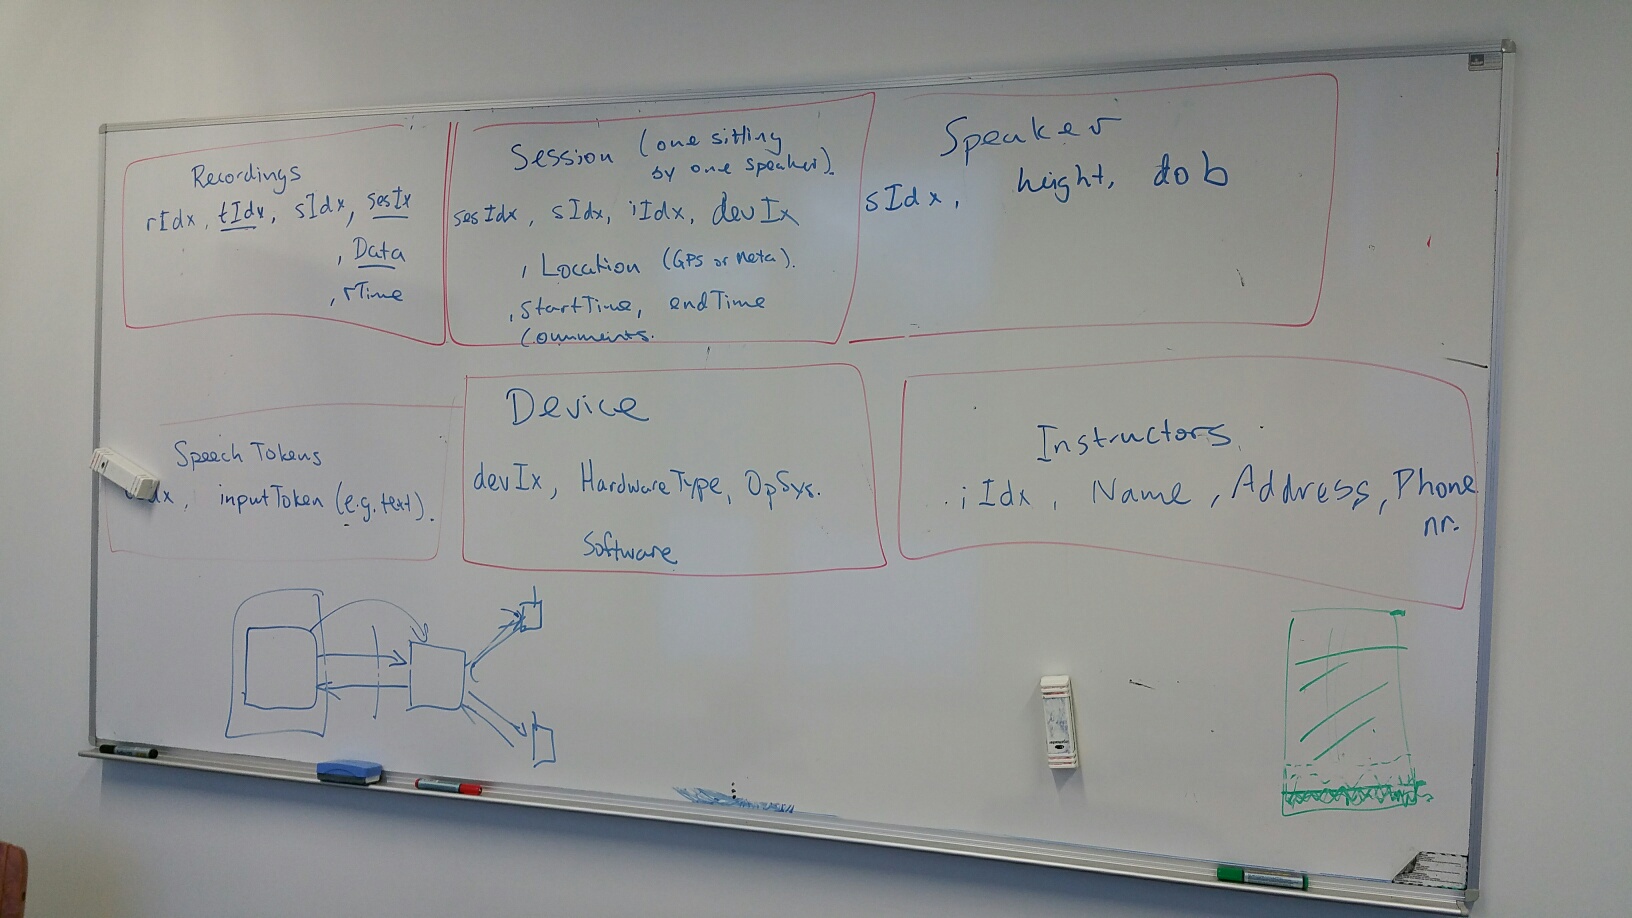 Recordings
rIdx, tIdx, sIdx, sesIx
, Data
, rTime
Session (one sitting
by one speaker).
sesIdx, sIdx, iIdx, devIx
, Location (GPS or Meta).
, startTime, endTime
Comments.
Speaker
sIdx, height, dob
Speech Tokens
dx, inputToken (e.g. text).
Device
devIx, HardwareType, OpSys.
Software
Instructors
iIdx, Name, Address, Phone
nr.